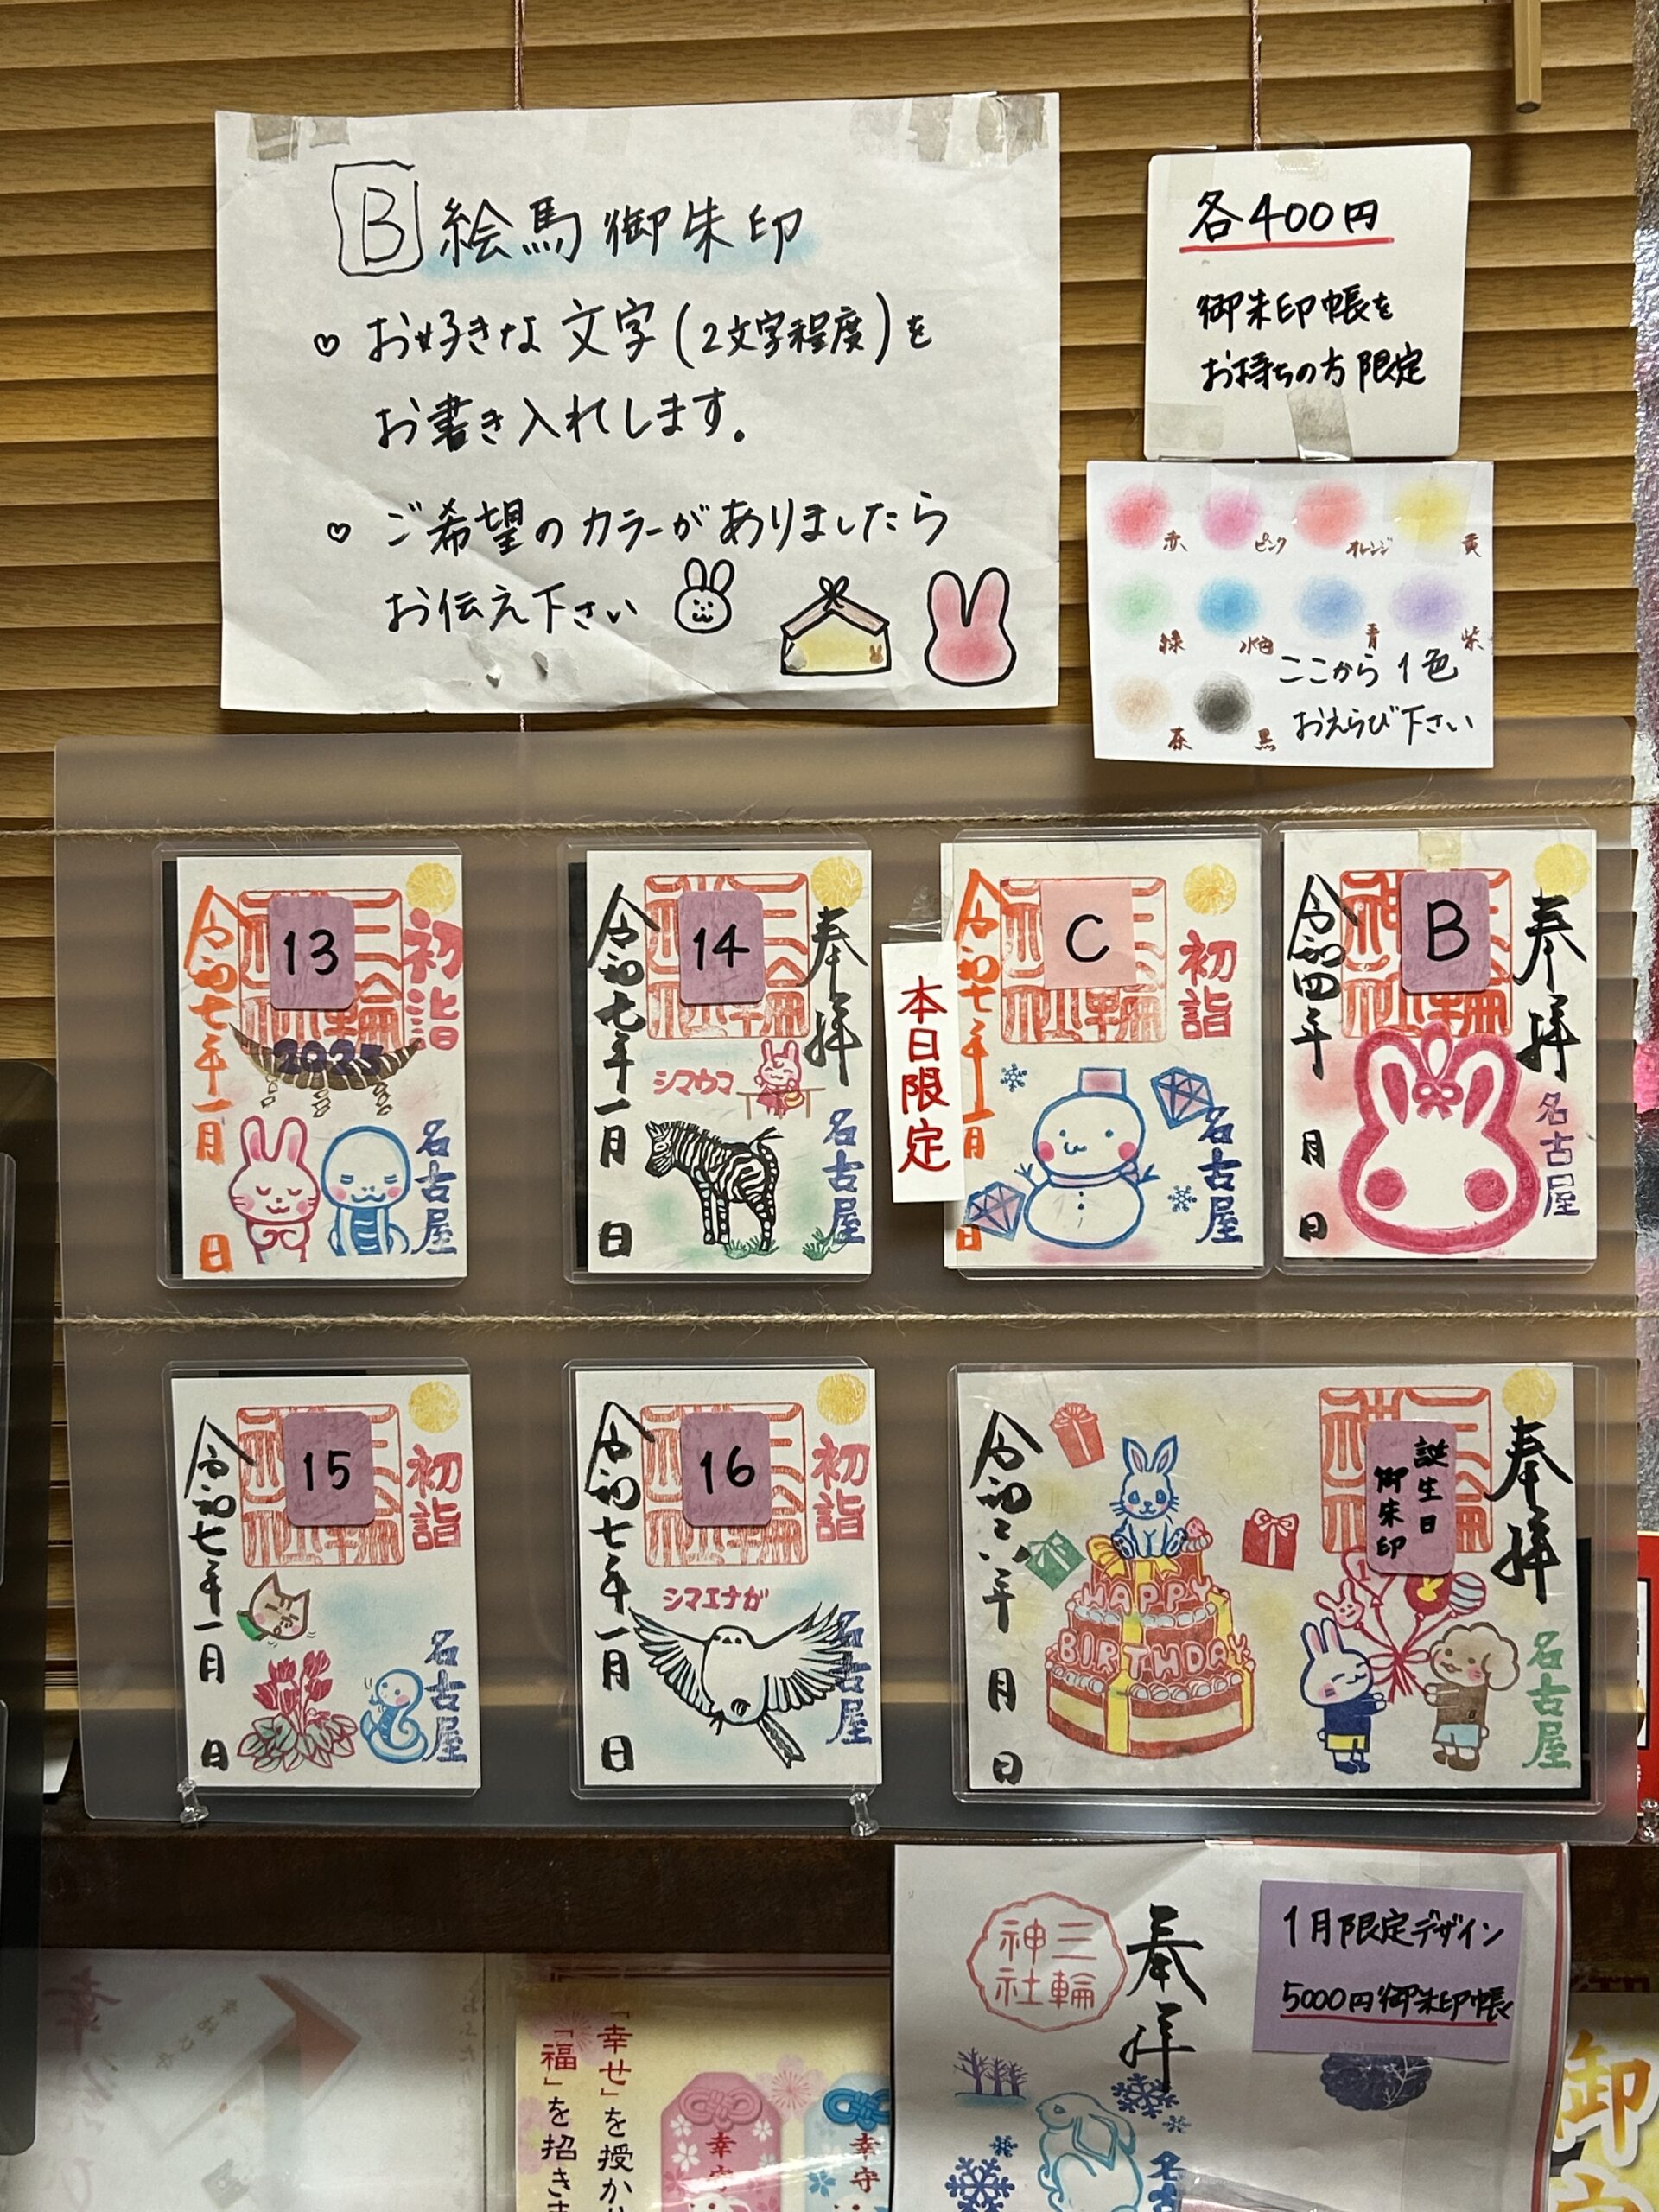 B 絵馬御朱印
♡ お好きな文字(2文字程度)を
お書き入れします。
♡ ご希望のカラーがありましたら
お伝え下さい
各400円
御朱印帳を
お持ちの方限定
赤 ピンク オレンジ 黄
緑 水色 青 紫
茶 黒
ここから1色
おえらび下さい
13
初詣
令和七年一月 日
2025
名古屋
14
奉拝
令和七年一月 日
シマウマ
名古屋
本日限定
C
初詣
令和七年一月
日
名古屋
B
奉拝
令和四年 月 日
名古屋
15
初詣
令和七年一月 日
名古屋
16
初詣
令和七年一月 日
シマエナガ
名古屋
誕生日
御朱印
奉拝
令和六年 月 日
HAPPY
BIRTHDAY
名古屋
1月限定デザイン
5000円御朱印帳
奉拝
三輪
神社
「幸せ」を授か
「福」を招き
幸守
幸守
御